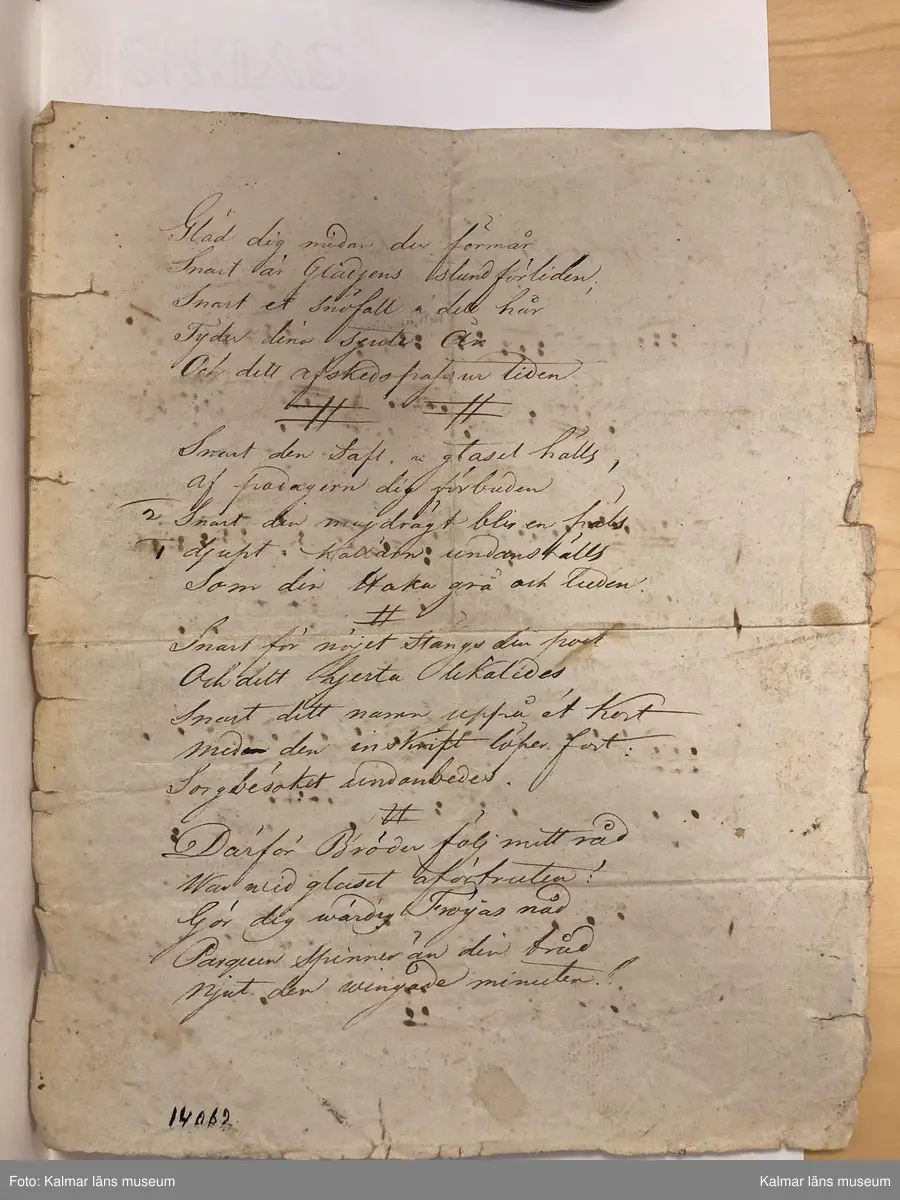 Gläd dig medan du förmår
Snart är Glädjens stund förliden,
Snart et snöfall i det hår
Tyder dina sjuti År
Och ditt afskedspass ur tiden
Snart den Saft, i glaset hälls,
af podagern dig förbuden
2 Snart din majdrägt blir en päls
1 djupt i källarn undanställs
Som din Haka grå och luden.
Snart för nöjet stängs din port
Och ditt hjerta likaledes
Snart ditt namn uppå ét Kort
med den inskrift löper fort:
Sorgbesöket undanbedes.
Därför Bröder följ mitt råd
War wid glaset oförtruten!
Gör dig wärdig Fröijas nåd
Parquen spinner än din tråd
Njut den wingade minuten!
14062
Foto: Kalmar läns museum
Kalmar läns museum